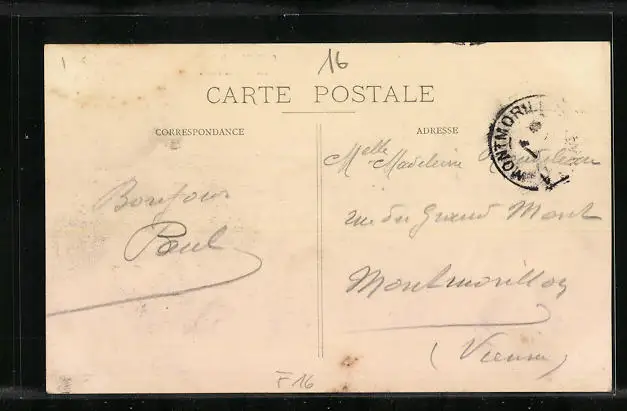 16
CARTE POSTALE
CORRESPONDANCE
ADRESSE
MONTMORILL
Melle Madeleine
Bonjour
Paul
rue du Grand Mont
Montmorillon
(Vienne)
F16